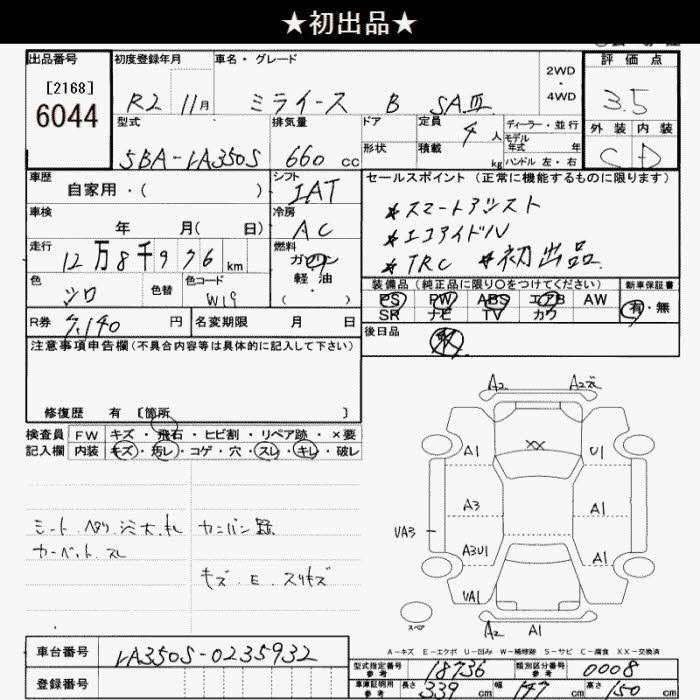 ★初出品★
出品番号
[2168]
6044
初度登録年月
R2 11月
車名・グレード
ミライース B SAⅢ
2WD
4WD
評価点
3.5
外装 内装
C D
型式
5BA-LA350S
排気量
660 cc
ドア
形状
定員 4人
積載 kg
ディーラー・並行
モデル年式 年
ハンドル 左・右
車歴
自家用・( )
シフト
IAT
車検
年 月( 日)
冷房
AC
走行
12万8千976 km
燃料
ガソリン
軽油
( )
色
シロ
色替
色コード
W19
R券 7,140 円
名変期限 月 日
セールスポイント(正常に機能するものに限ります)
*スマートアシスト
*エコアイドル
*TRC *初出品
装備品(純正品に限り○をつけてください)
PS PW ABS エアB AW
SR ナビ TV カワ
新車保証書
有・無
後日品
注意事項申告欄(不具合内容等は具体的に記入して下さい)
修復歴 有 〔箇所 〕
検査員記入欄
FW キズ・飛石・ヒビ割・リペア跡・×要
内装 キズ・汚レ・コゲ・穴・スレ・キレ・破レ
A2 A2
XX
A1 U1
A3 A1
VA3
A3U1 A1
VA1
スペア
A2 A1
A-キズ E-エクボ U-凹み W-補修跡 S-サビ C-腐食 XX-交換済
車台番号 LA350S-0235932
登録番号
型式指定番号 参考 18736
類別区分番号 参考 0008
車庫証明用 参考 長さ 339 cm 幅 147 cm 高さ 150 cm